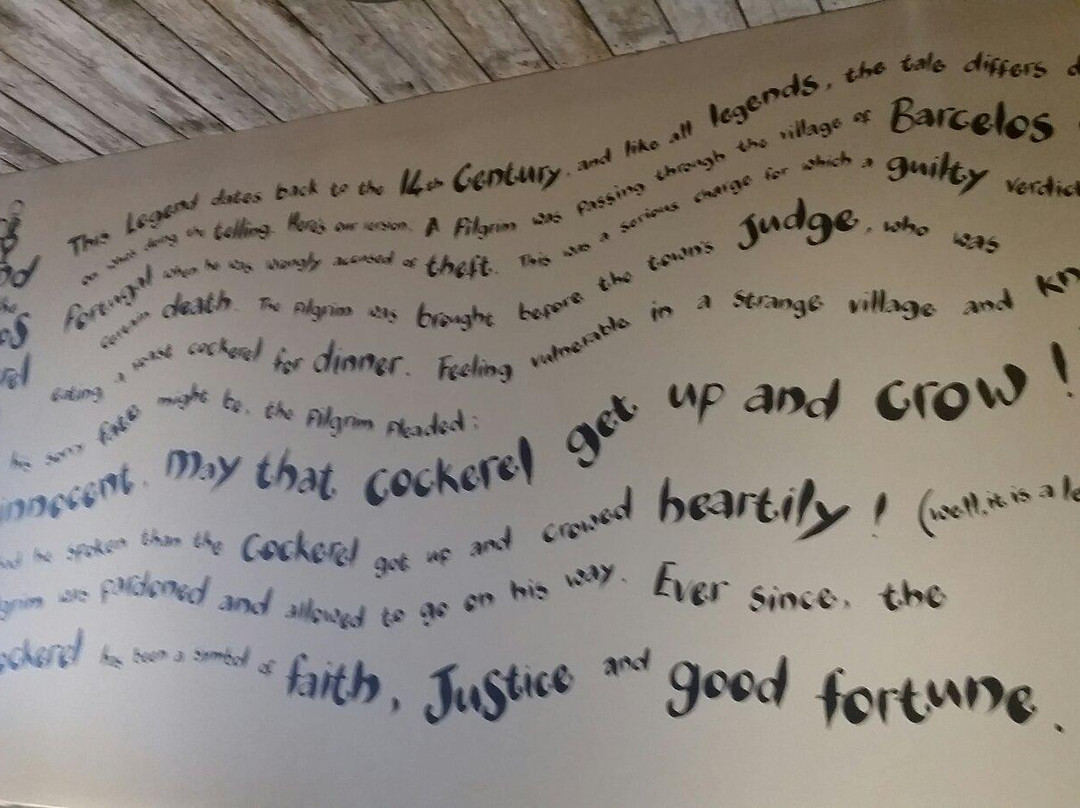 This Legend dates back to the 14th Century, and like all legends, the tale differs
on who's doing the telling. Here's our version. A Pilgrim was passing through the village of Barcelos
Portugal when he was wrongly accused of theft. This was a serious charge for which a guilty verdict
certain death. The Pilgrim was brought before the town's Judge, who was
eating a roast cockerel for dinner. Feeling vulnerable in a strange village and
his sorry fate might be, the Pilgrim pleaded:
innocent, may that cockerel get up and crow!
he spoken than the Cockerel got up and crowed heartily! (well, it is a
was pardoned and allowed to go on his way. Ever since, the
has been a symbol of faith, Justice and good fortune.